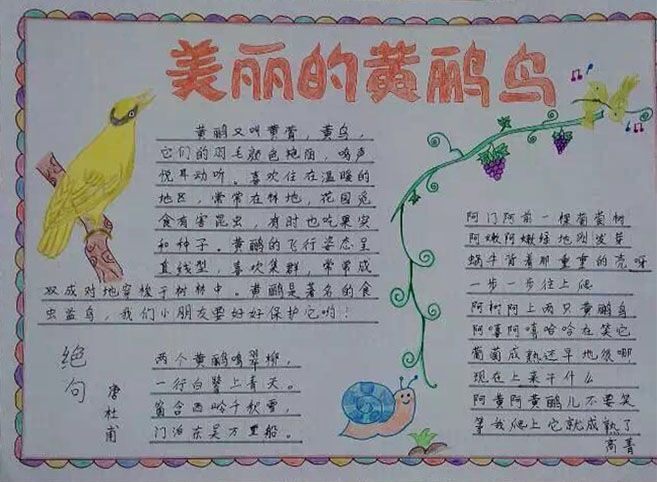 美丽的黄鹂鸟
黄鹂又叫黄莺,黄鸟,
它们的羽毛颜色艳丽,鸣声
悦耳动听。喜欢住在温暖的
地区,常常在林地,花园觅
食有害昆虫,有时也吃果实
和种子。黄鹂的飞行姿态呈
直线型,喜欢集群,常常成
双成对地穿梭于树林中。黄鹂是著名的食
虫益鸟,我们小朋友要好好保护它哟!
绝句
唐杜甫
两个黄鹂鸣翠柳,
一行白鹭上青天。
窗含西岭千秋雪,
门泊东吴万里船。
阿门阿前一棵葡萄树
阿嫩阿嫩绿地刚发芽
蜗牛背着那重重的壳呀
一步一步往上爬
阿树阿上两只黄鹂鸟
阿嘻阿嘻哈哈在笑它
葡萄成熟还早地很哪
现在上来干什么
阿黄阿黄鹂儿不要笑
等我爬上它就成熟了
高菁